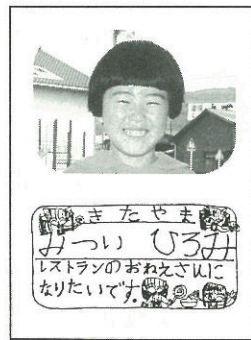 きたやま
みつい ひろみ
レストランのおねえさんに
なりたいです。